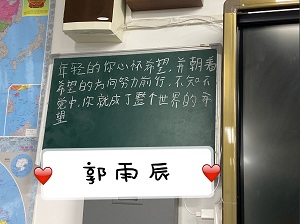 年轻的你心怀希望,并朝着
希望的方向努力前行,不知不
觉中,你就成了整个世界的希
望
郭雨辰